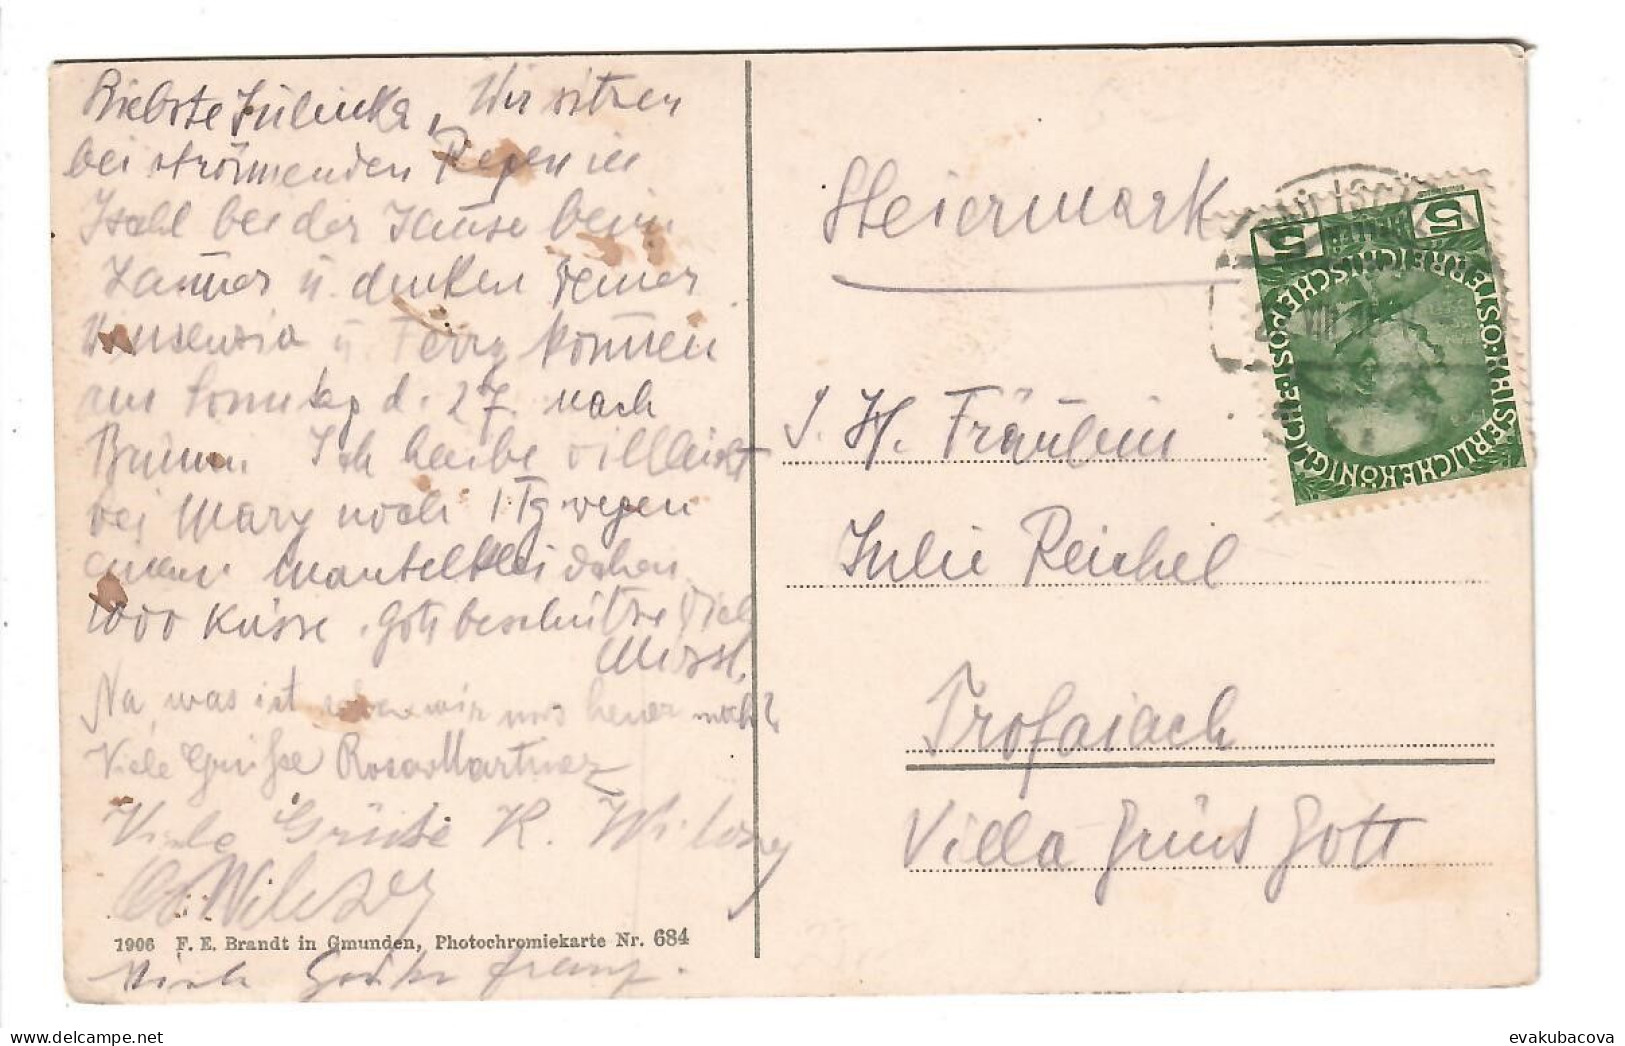 Liebste Julinka, Wir sitzen
bei strömenden Regen in
Ischl bei der Jause beim
Zauner u. denken Deiner
u Ferry können
am Sonntag d. 27. nach
Brünn. Ich bleibe villleicht
bei Mary noch 1 Tg wegen
einem Mantelkleid oben
1000 Küsse. Gott beschütze Dich
Na, was ist, sehen wir uns heuer noch?
Viele Grüße Rosa Martinez
Viele Grüße K. Wilczey
Wilczey
1906 F. E. Brandt in Gmunden, Photochromiekarte Nr. 684
Steiermark
I. H. Fräulein
Julie Reichel
Trofaiach
Villa Grüss Gott
5 HELLER 5
KAISERLICHE KÖNIGLICHE ÖSTERREICHISCHE POST
VIII
evakubacova
delcampe.net